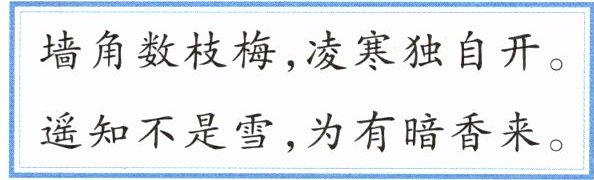 墙角数枝梅,凌寒独自开。
遥知不是雪,为有暗香来。